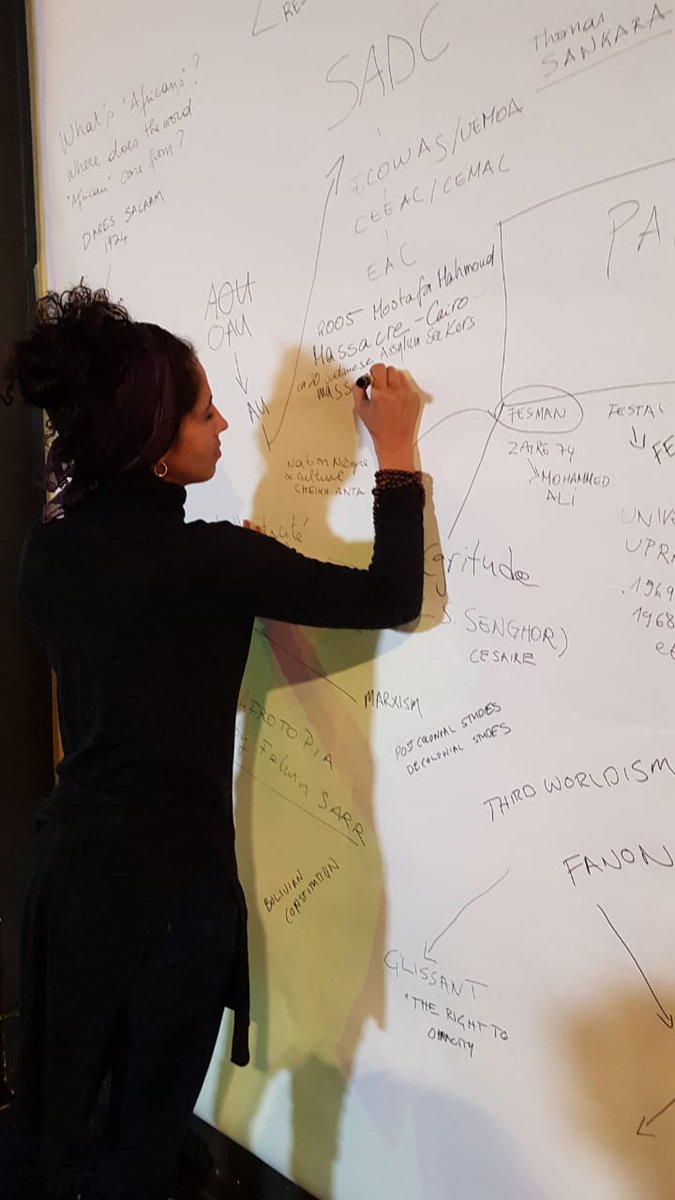 RE-
SADC
Thomas
SANKARA
What's "Africans"?
Where does the word
"African" come from?
DARES SALAAM
1974
ECOWAS/UEMOA
CEEAC/CEMAC
EAC
AOU
OAU
AU
2005 Mostafa Mahmoud
Massacre - Cairo -
Sudanese Asylum Seekers
mass
PA
FESMAN
ZAIRE 74
MOHAMMED
ALI
FESTAC
FE
Nation Nègre
& culture
CHEIKH ANTA
icité
gritude
S. SENGHOR)
CESAIRE
UNIV
UPR
1969
1968
MARXISM
POSTCOLONIAL STUDIES
DECOLONIAL STUDIES
AFROTOPIA
by Felwin SARR
BOLIVIAN
CONSTITUTION
THIRD WORLDISM
FANON
GLISSANT
"THE RIGHT TO
OPACITY